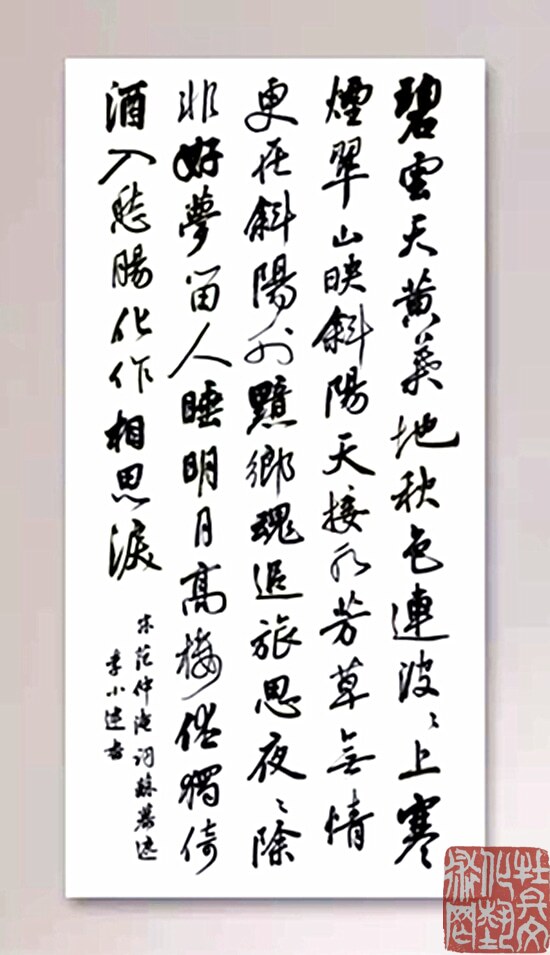 碧雲天黃葉地秋色連波〻上寒
煙翠山映斜陽天接水芳草無情
更在斜陽外黯鄉魂追旅思夜〻除
非好夢留人睡明月高樓獨倚
酒入愁腸化作相思淚
宋范仲淹詞蘇幕遮
李小書